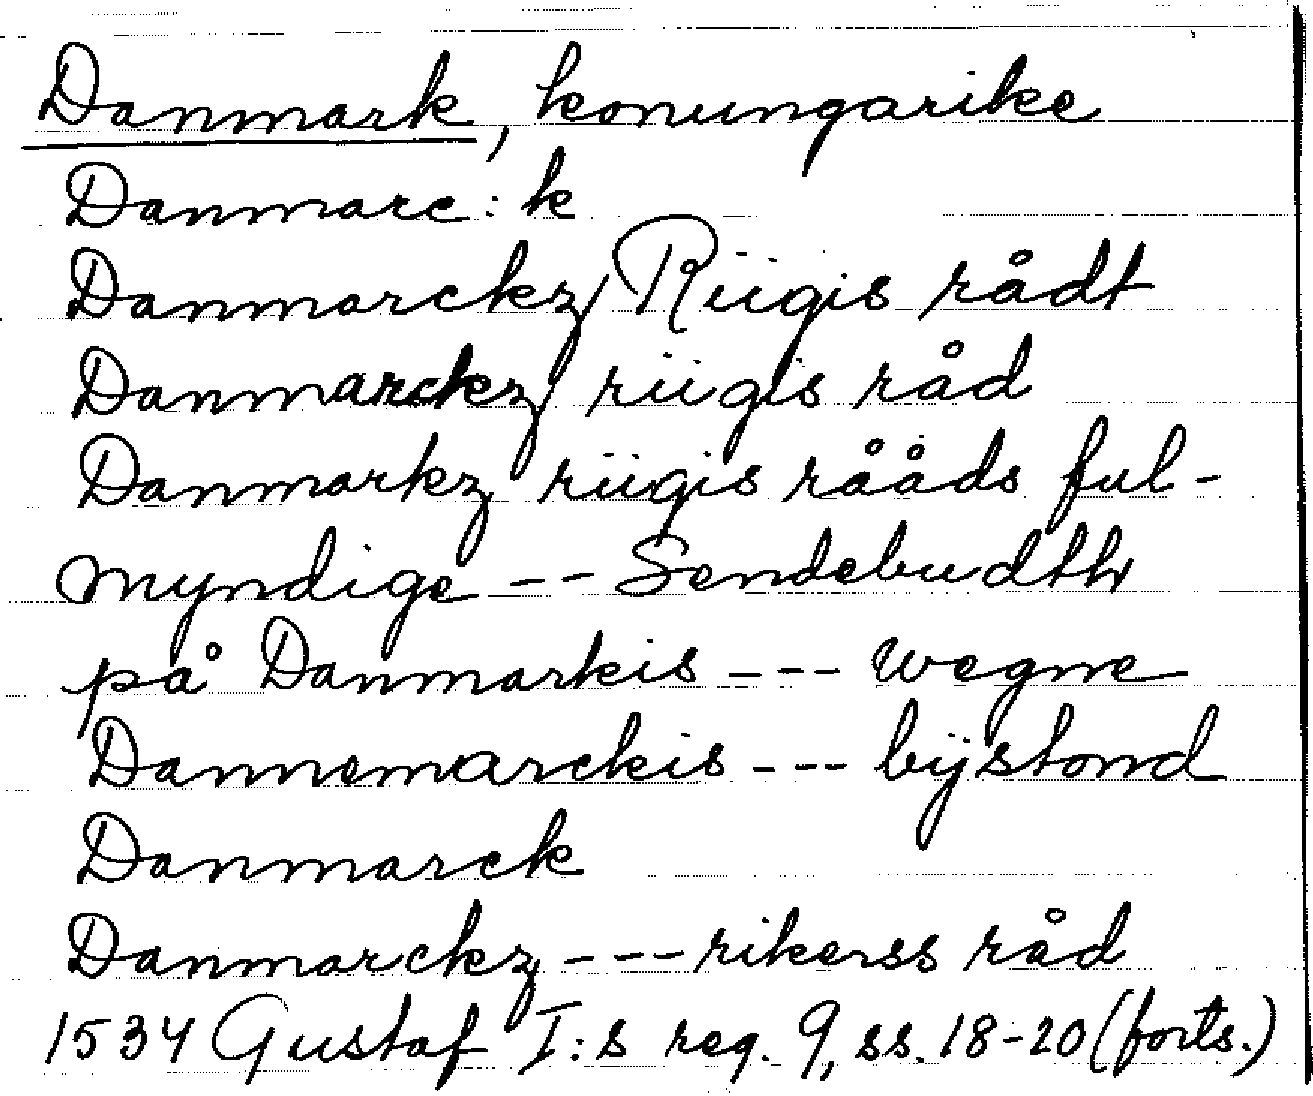 Danmark, konungarike
Danmarc:k
Danmarckz Riigis rådt
Danmarckz riigis råd
Danmarkz riigis rååds ful-
myndige -- Sendebudth
på Danmarkis --- wegne
Dannemarckis --- bÿstond
Danmarck
Danmarckz --- rikerss råd
1534 Gustaf I:s reg. 9, ss. 18-20 (forts.)